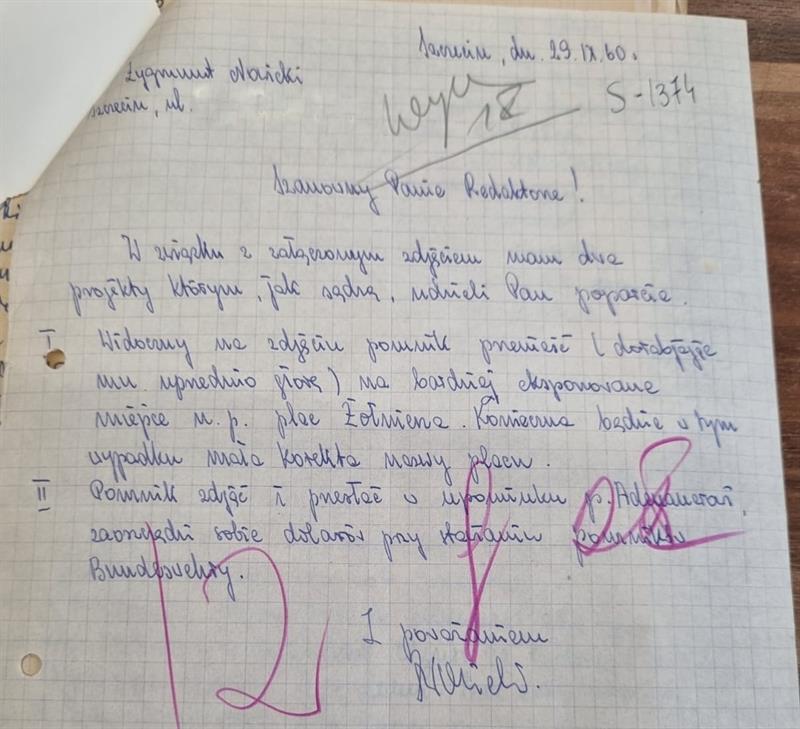 Szczecin, dn. 29.IX.60.
Zygmunt
Szczecin, ul.
18
S-1374
Szanowny Panie Redaktorze!
W związku z załączonym zdjęciem mam dwa
projekty którym, jak sądzę, udzieli Pan poparcia.
I Widoczny na zdjęciu pomnik przenieść (dorabiając
mu uprzednio głowę) na bardziej eksponowane
miejsce n.p. plac Żołnierza. Konieczna będzie w tym
wypadku mała korekta nazwy placu.
II Pomnik zdjąć i przesłać w upominku p. Adenauerowi,
zaoszczędzi sobie dolarów przy stawianiu pomników
Bundeswehry.
Z poważaniem
12